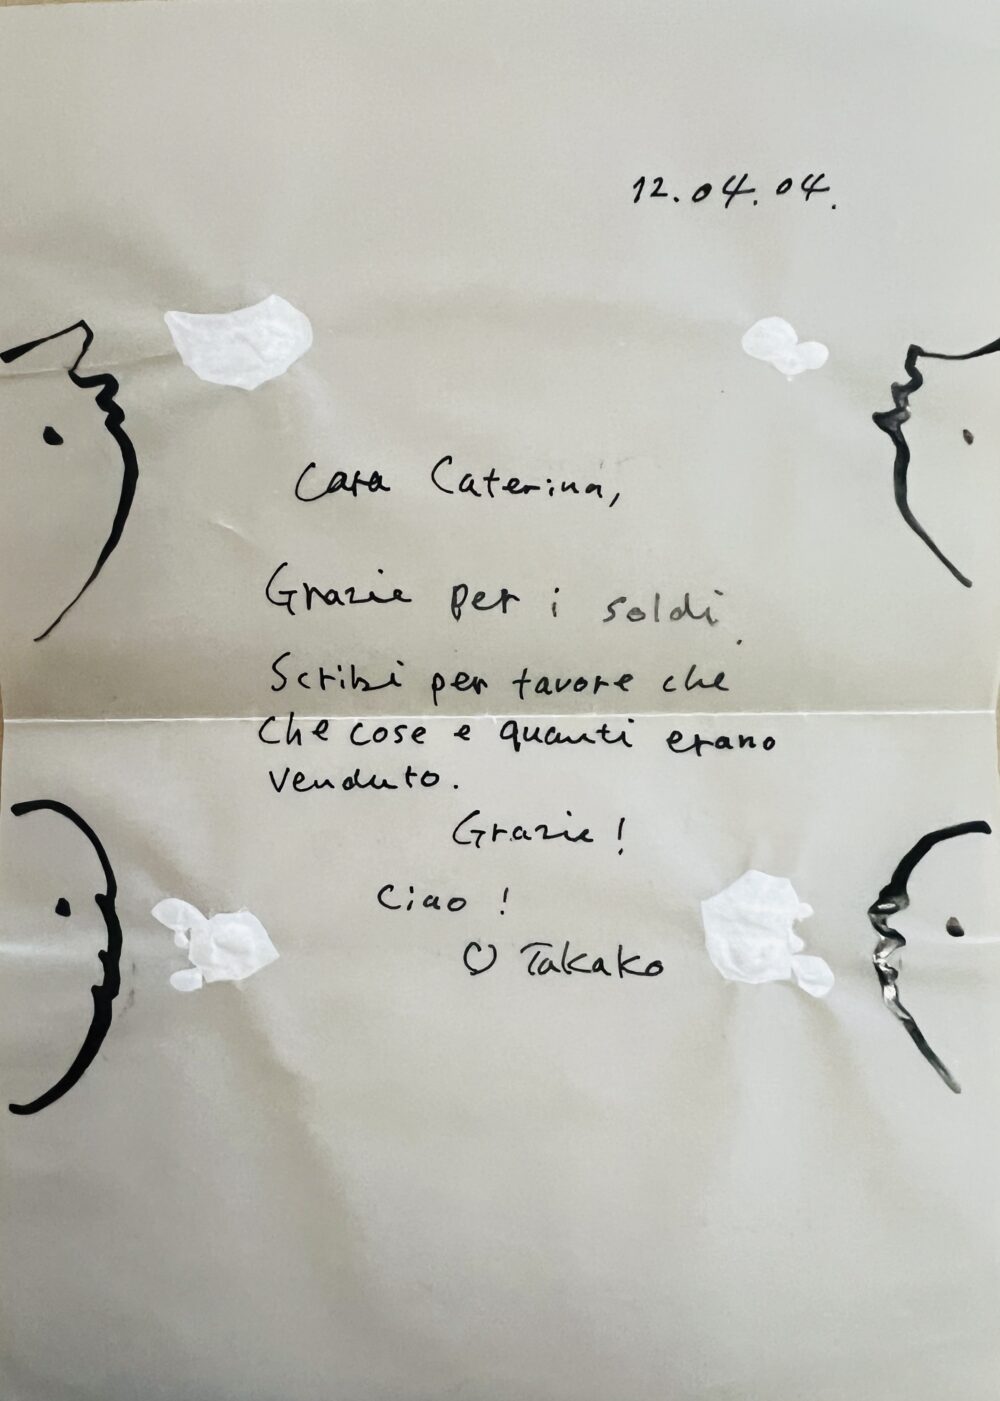 12.04.04.
Cara Caterina,
Grazie per i soldi.
Scribi per favore che
che cose e quanti erano
venduto.
Grazie!
Ciao!
♡ Takako